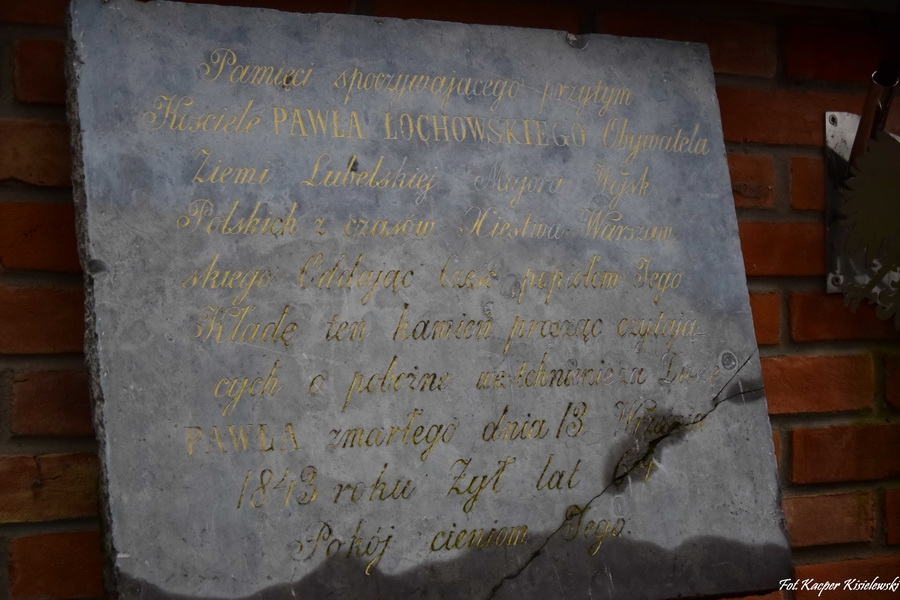 Pamięci spoczywającego przytym
Kosciele PAWŁA ŁOCHOWSKIEGO Obywatela
Ziemi Lubelskiej Majora Wojsk
Polskich z czasów Xiestwa Warszaw
skiego Oddając Cześć popiołom Jego
Kładę ten kamień prosząc czytają-
cych o pobożne westchnienie za Duszę
PAWŁA zmarłego dnia 13 Września
1843 roku Żył lat
Pokój cieniom Jego
Fot. Kacper Kisielewski